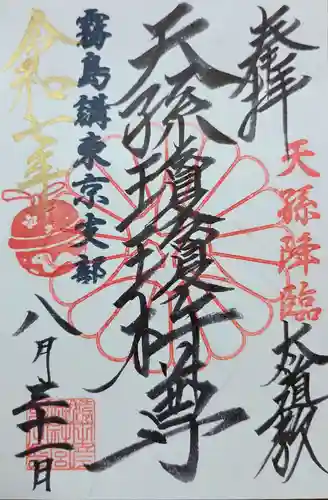 奉拝
天孫降臨
天孫瓊瓊杵尊
霧島講東京支部
令和七年
八月三十一日